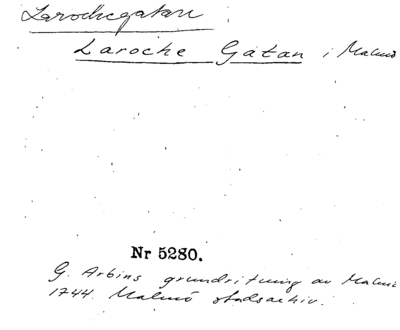 Larochegatan
Laroche Gatan i Malmö
Nr 5280.
G. Arbins grundritning av Malmö
1744. Malmö stadsarkiv.